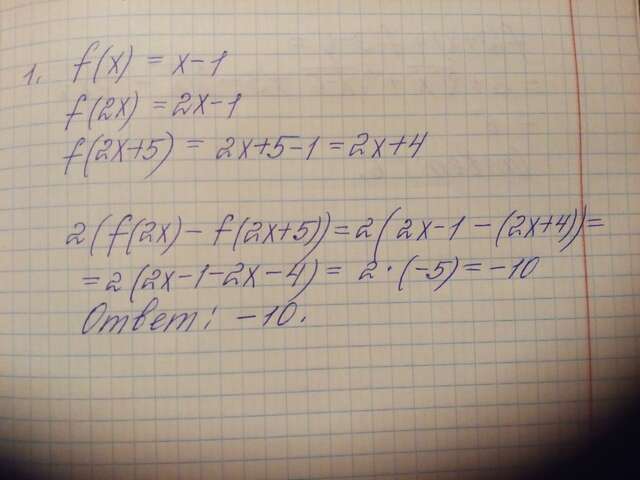 1. f(x) = x-1
f(2x) = 2x-1
f(2x+5) = 2x+5-1 = 2x+4
2(f(2x) - f(2x+5)) = 2(2x-1-(2x+4)) =
= 2(2x-1-2x-4) = 2·(-5) = -10
Ответ: -10.